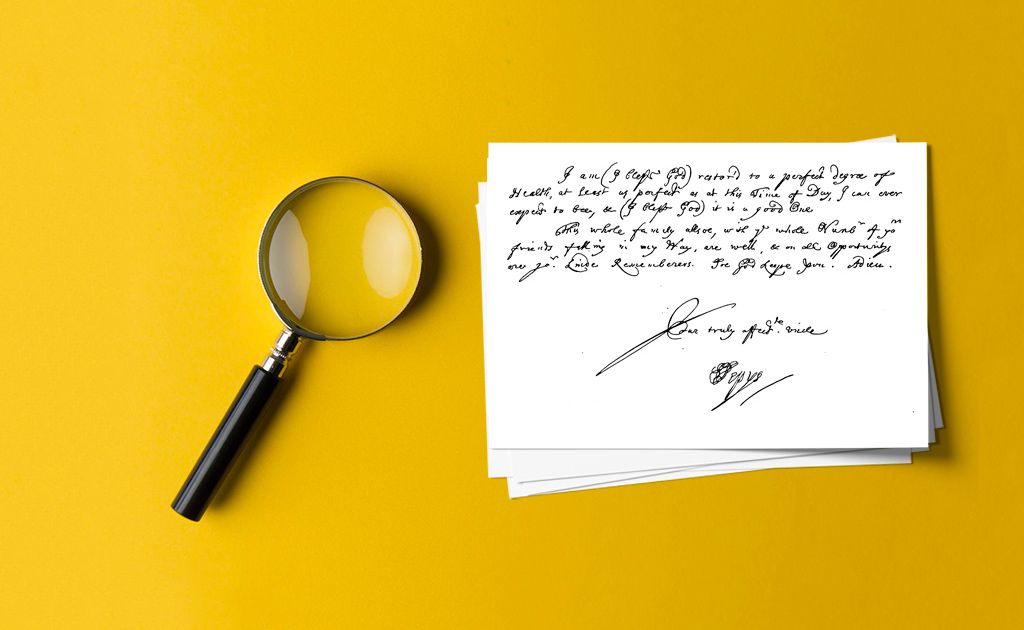 I am (I bless God) restord to a perfect degree of
Health, at least as perfect as at this Time of Day, I can ever
expect to bee, & (I bless God) it is a good One
This whole family alsoe, with yᵉ whole Numbʳ of yoʳ
friends falling in my Way, are well, & on all Opportunitys
over yoʳ. Kinde Rememberers. Soe God keepe you. Adieu.
Your truly affectᵗᵉ. Uncle
SPepys